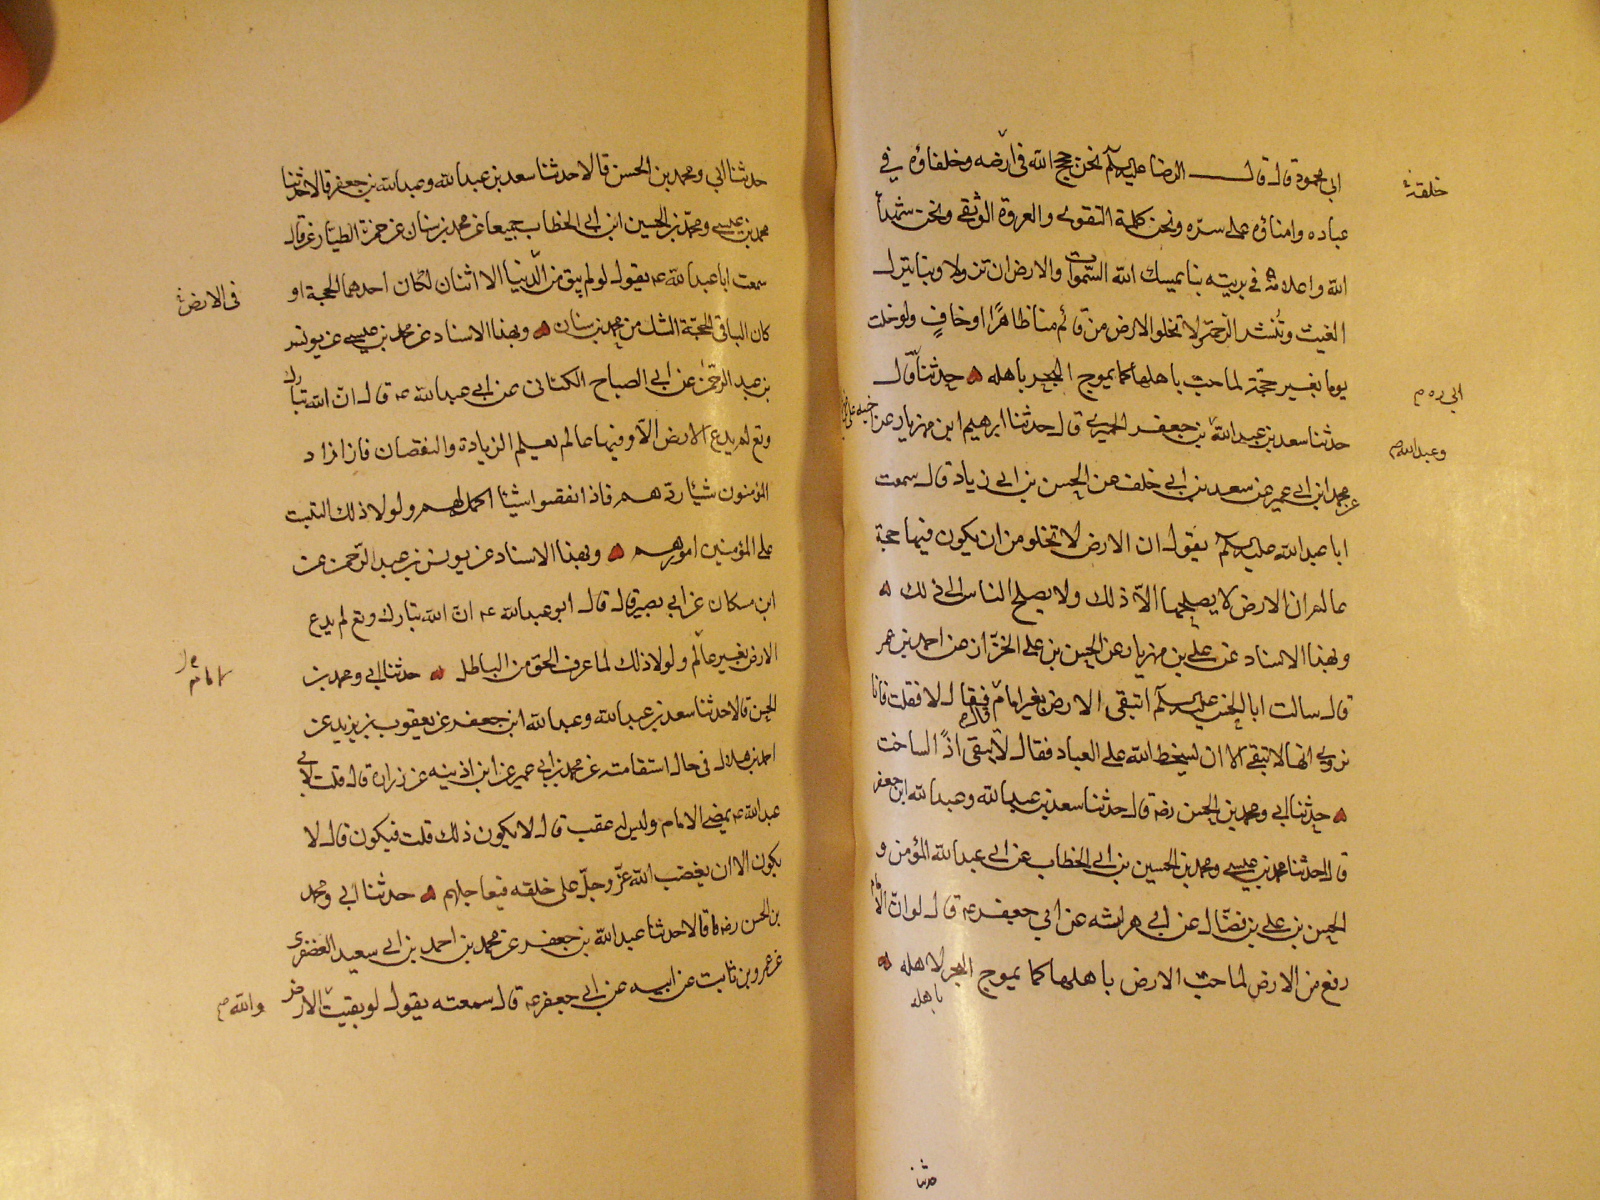 ابي محمود قال قال الرضا عليه السلام نحن حجج الله في ارضه وخلفاؤه في
خلقه خ
عباده وامناؤه على سره ونحن كلمة التقوى والعروة الوثقى ونحن شهداء
الله واعلامه في بريته بنا يمسك الله السموات والارض ان تزولا وبنا ينزل
الغيث وتنشر الرحمة لا تخلو الارض من قائم منا ظاهرا او خاف ولو خلت
يوما بغير حجة لماجت باهلها كما يموج البحر باهله حدثنا قال
ابي ره م
حدثنا سعد بن عبد الله بن جعفر الحميري قال حدثنا ابرهيم ابن مهزيار عن اخيه علي
وعبد الله م
عن محمد ابن ابي عمير عن سعد بن ابي خلف عن الحسن بن ابي زياد قال سمعت
ابا عبد الله عليه السلام يقول ان الارض لا تخلو من ان يكون فيها حجة
عالم ان الارض لا يصلحها الا ذلك ولا يصلح الناس الى ذلك
وبهذا الاسناد عن علي بن مهزيار عن الحسن بن علي الخزان عن احمد بن عمر
قال سالت ابا الحسن عليه السلام اتبقى الارض بغير امام فقال لا فقلت فانا
نروي انها لا تبقى الا ان يسخط الله على العباد فقال لا تبقى اذا لساخت
حدثنا ابي ومحمد بن الحسن رضه قال حدثنا سعد بن عبد الله وعبد الله ابن جعفر
قال حدثنا محمد بن عيسى ومحمد بن الحسين بن ابي الخطاب عن ابي عبد الله المؤمن و
الحسن بن علي بن فضال عن ابي هراسه عن ابي جعفر عه قال لو ان الامام
رفع من الارض لماجت الارض باهلها كما يموج البحر لاهله
باهله
حدثنا
حدثنا ابي ومحمد بن الحسن قالا حدثنا سعد بن عبد الله وعبد الله بن جعفر قالا حدثنا
محمد بن عيسى ومحمد بن الحسين ابن ابي الخطاب جميعا عن محمد بن سنان عن حمزة الطيار قال
سمعت ابا عبد الله عه يقول لو لم يبق من الدنيا الا اثنان لكان احدهما الحجة او
في الارض خ
كان الباقي الحجة الشك من محمد بن سنان وبهذا الاسناد عن محمد بن عيسى عن يونس
بن عبد الرحمن عن ابي الصباح الكناني عن ابي عبد الله عه قال ان الله تبارك
وتع لم يدع الارض الا وفيها عالم يعلم الزيادة والنقصان فاذا زاد
المؤمنون شيئا ردهم فاذا نقصوا شيئا اكمله لهم ولولا ذلك التبست
على المؤمنين امورهم وبهذا الاسناد عن يونس بن عبد الرحمن عن
ابن مسكان عن ابي بصير قال قال ابو عبد الله عه ان الله تبارك وتع لم يدع
الارض بغير عالم ولولا ذلك لما عرف الحق من الباطل حدثنا ابي ومحمد بن
الحسن قالا حدثنا سعد بن عبد الله وعبد الله ابن جعفر عن يعقوب بن يزيد عن
احمد بن هلال في حال استقامته عن محمد بن ابي عمير عن ابن اذينه عن زراره قال قلت لابي
عبد الله عه يمضي الامام وليس له عقب قال لا يكون ذلك قلت فيكون قال لا
يكون الا ان يغضب الله عز وجل على خلقه فيعاجلهم حدثنا ابي ومحمد
بن الحسن رضه قالا حدثنا عبد الله بن جعفر عن محمد بن احمد بن ابي سعيد العضفري
عن عمرو بن ثابت عن ابيه عن ابي جعفر عه قال سمعته يقول لو بقيت الارض
والله م